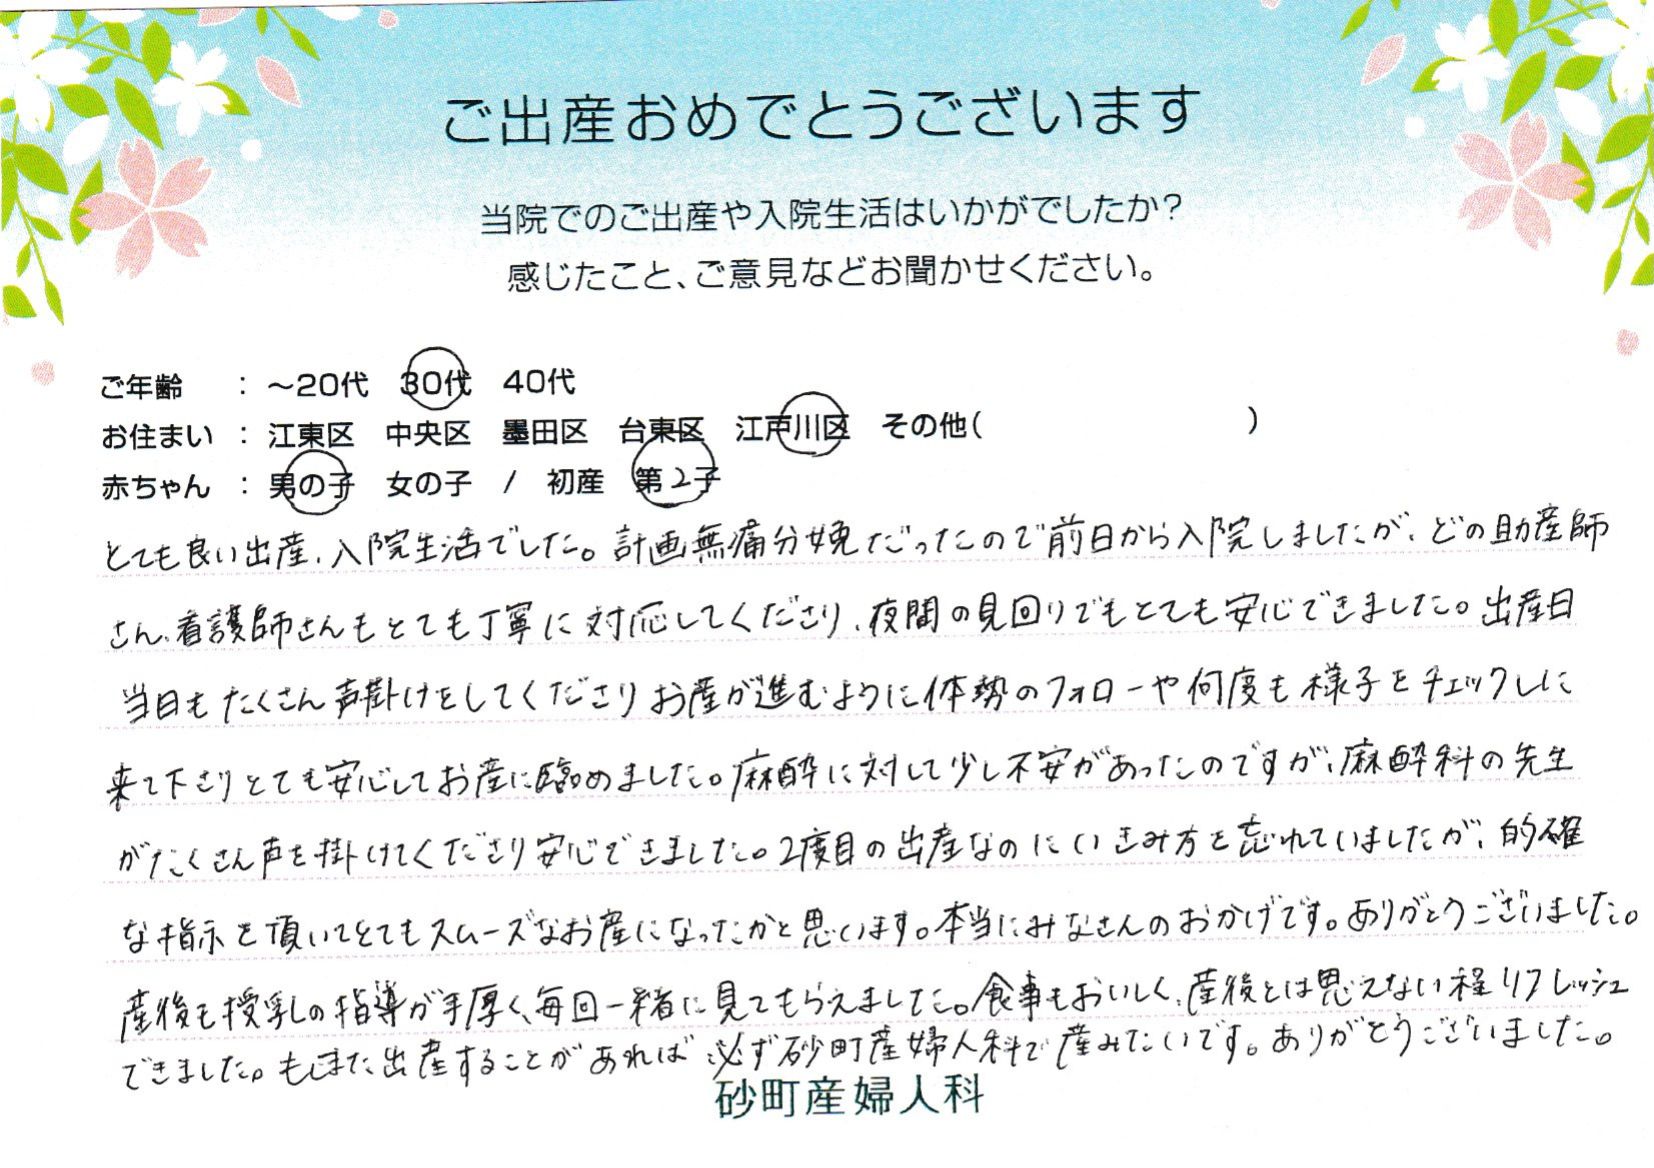 ご出産おめでとうございます
当院でのご出産や入院生活はいかがでしたか?
感じたこと、ご意見などお聞かせください。
ご年齢 : ～20代 30代 40代
お住まい : 江東区 中央区 墨田区 台東区 江戸川区 その他( )
赤ちゃん : 男の子 女の子 / 初産 第2子
とても良い出産、入院生活でした。計画無痛分娩だったので前日から入院しましたが、どの助産師
さん、看護師さんもとても丁寧に対応してくださり、夜間の見回りでもとても安心できました。出産日
当日もたくさん声掛けをしてくださりお産が進むように体勢のフォローや何度も様子をチェックしに
来て下さりとても安心してお産に臨めました。麻酔に対して少し不安があったのですが、麻酔科の先生
がたくさん声を掛けてくださり安心できました。2度目の出産なのにいきみ方を忘れていましたが、的確
な指示を頂いてとてもスムーズなお産になったかと思います。本当にみなさんのおかげです。ありがとうございました。
産後も授乳の指導が手厚く、毎回一緒に見てもらえました。食事もおいしく、産後とは思えない程リフレッシュ
できました。もしまた出産することがあれば必ず砂町産婦人科で産みたいです。ありがとうございました。
砂町産婦人科